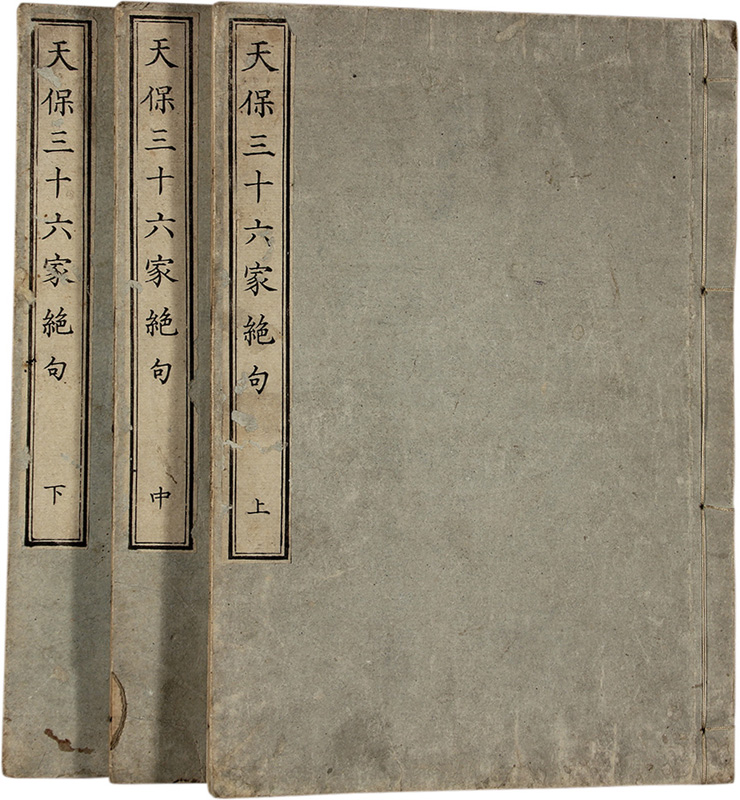 天保三十六家絶句 上
天保三十六家絶句 中
天保三十六家絶句 下